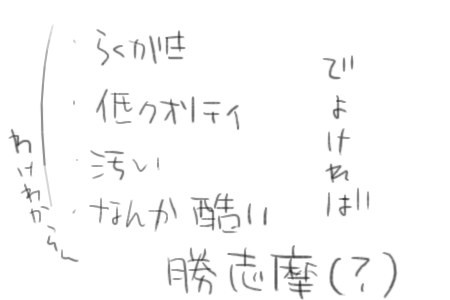 ・らくがき
・低クオリティ
・汚い
・なんか酷い
わけわからん
でよければ!!
勝志摩(?)